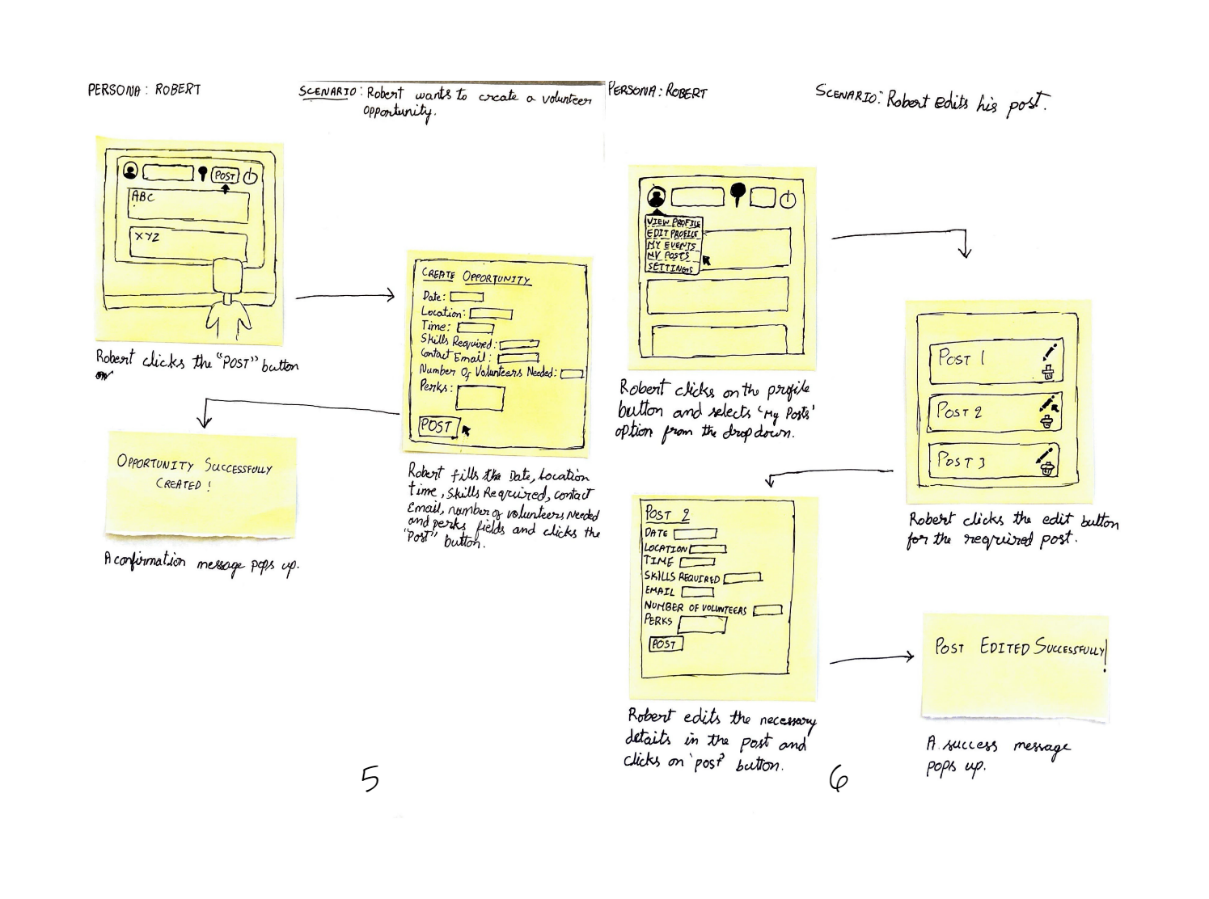 PERSONA: ROBERT
SCENARIO: Robert wants to create a volunteer
opportunity.
POST
ABC
XYZ
Robert clicks the "POST" button
CREATE OPPORTUNITY
Date:
Location:
Time:
Skills Required:
Contact Email:
Number Of Volunteers Needed:
Perks:
POST
Robert fills the Date, Location
time, skills Required, contact
Email, number of volunteers Needed
and perks fields and clicks the
"Post" button.
OPPORTUNITY SUCCESSFULLY
CREATED!
A confirmation message pops up.
5
PERSONA: ROBERT
SCENARIO: Robert edits his post.
VIEW PROFILE
EDIT PROFILE
MY EVENTS
MY POSTS
SETTINGS
Robert clicks on the profile
button and selects 'My Posts'
option from the dropdown.
POST 1
POST 2
POST 3
Robert clicks the edit button
for the required post.
POST 2
DATE
LOCATION
TIME
SKILLS REQUIRED
EMAIL
NUMBER OF VOLUNTEERS
PERKS
POST
Robert edits the necessary
details in the post and
clicks on 'post' button.
POST EDITED SUCCESSFULLY!
A success message
pops up.
6